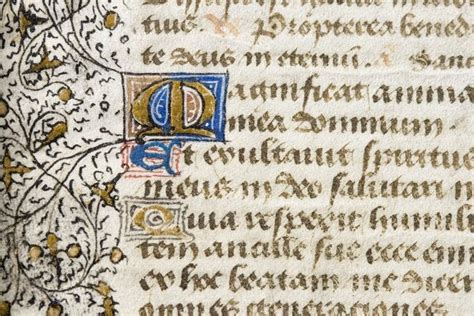 tius Propterea bened
te deus in eternū Sanc
Magnificat anima
mea dominum
Et exultauit spiritus
meus in deo salutari m
Quia respexit humili
tem ancille sue ecce enim
ex hoc beatam me dicen
omnes generationes